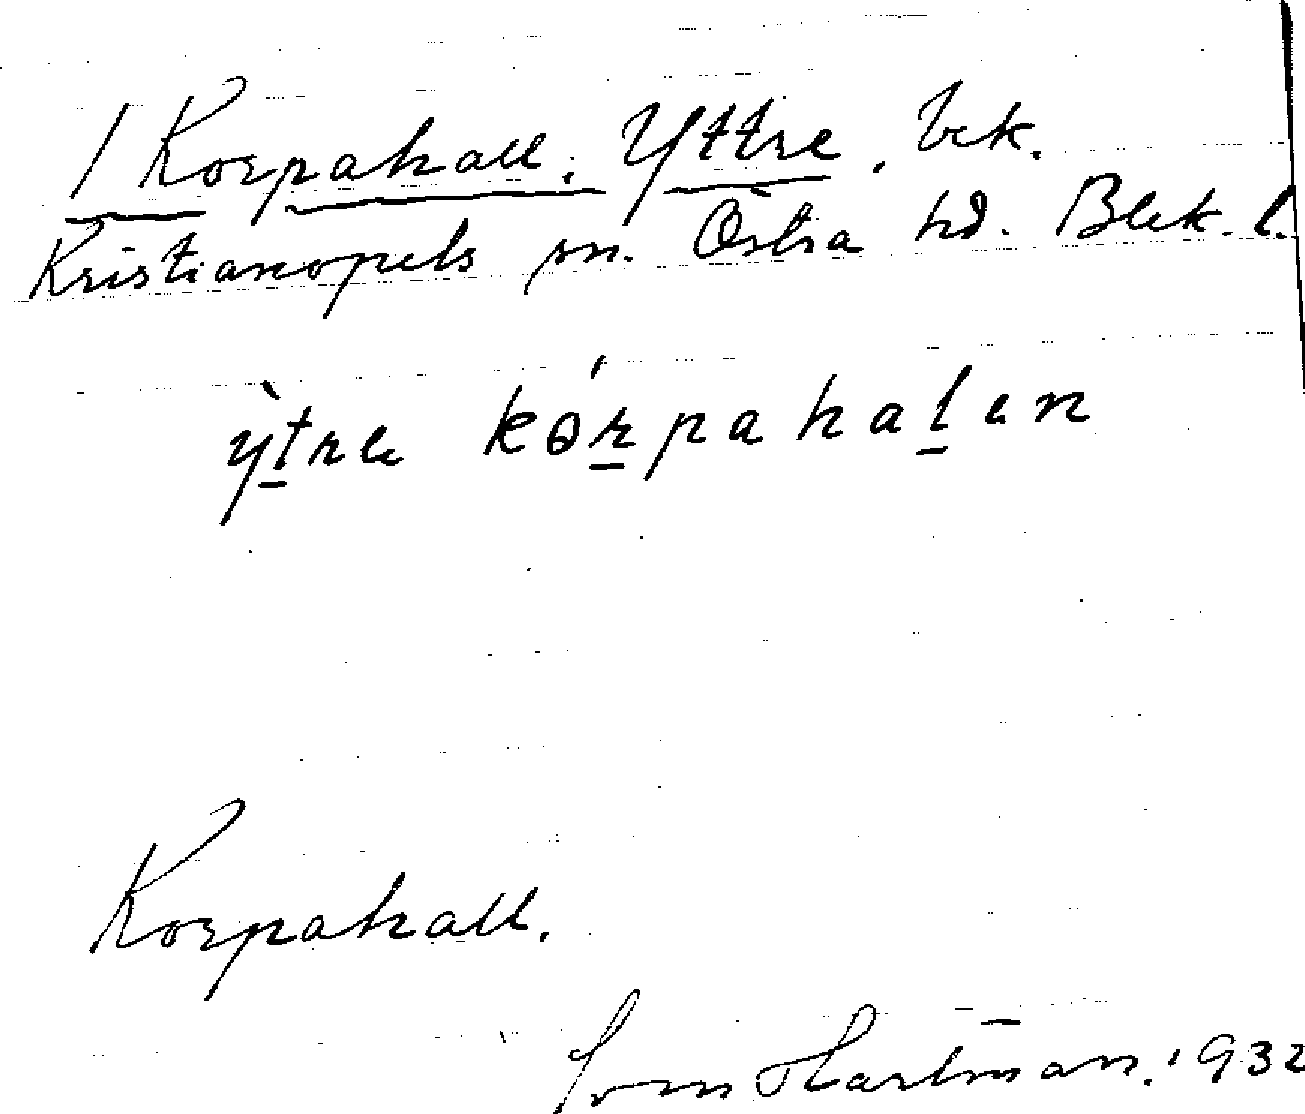 / Korpahall, Yttre, bek.
Kristianopels sn. Östra hd. Blek. l.
ỳtre kórpahalen
Korpahall.
Hartman. 1932